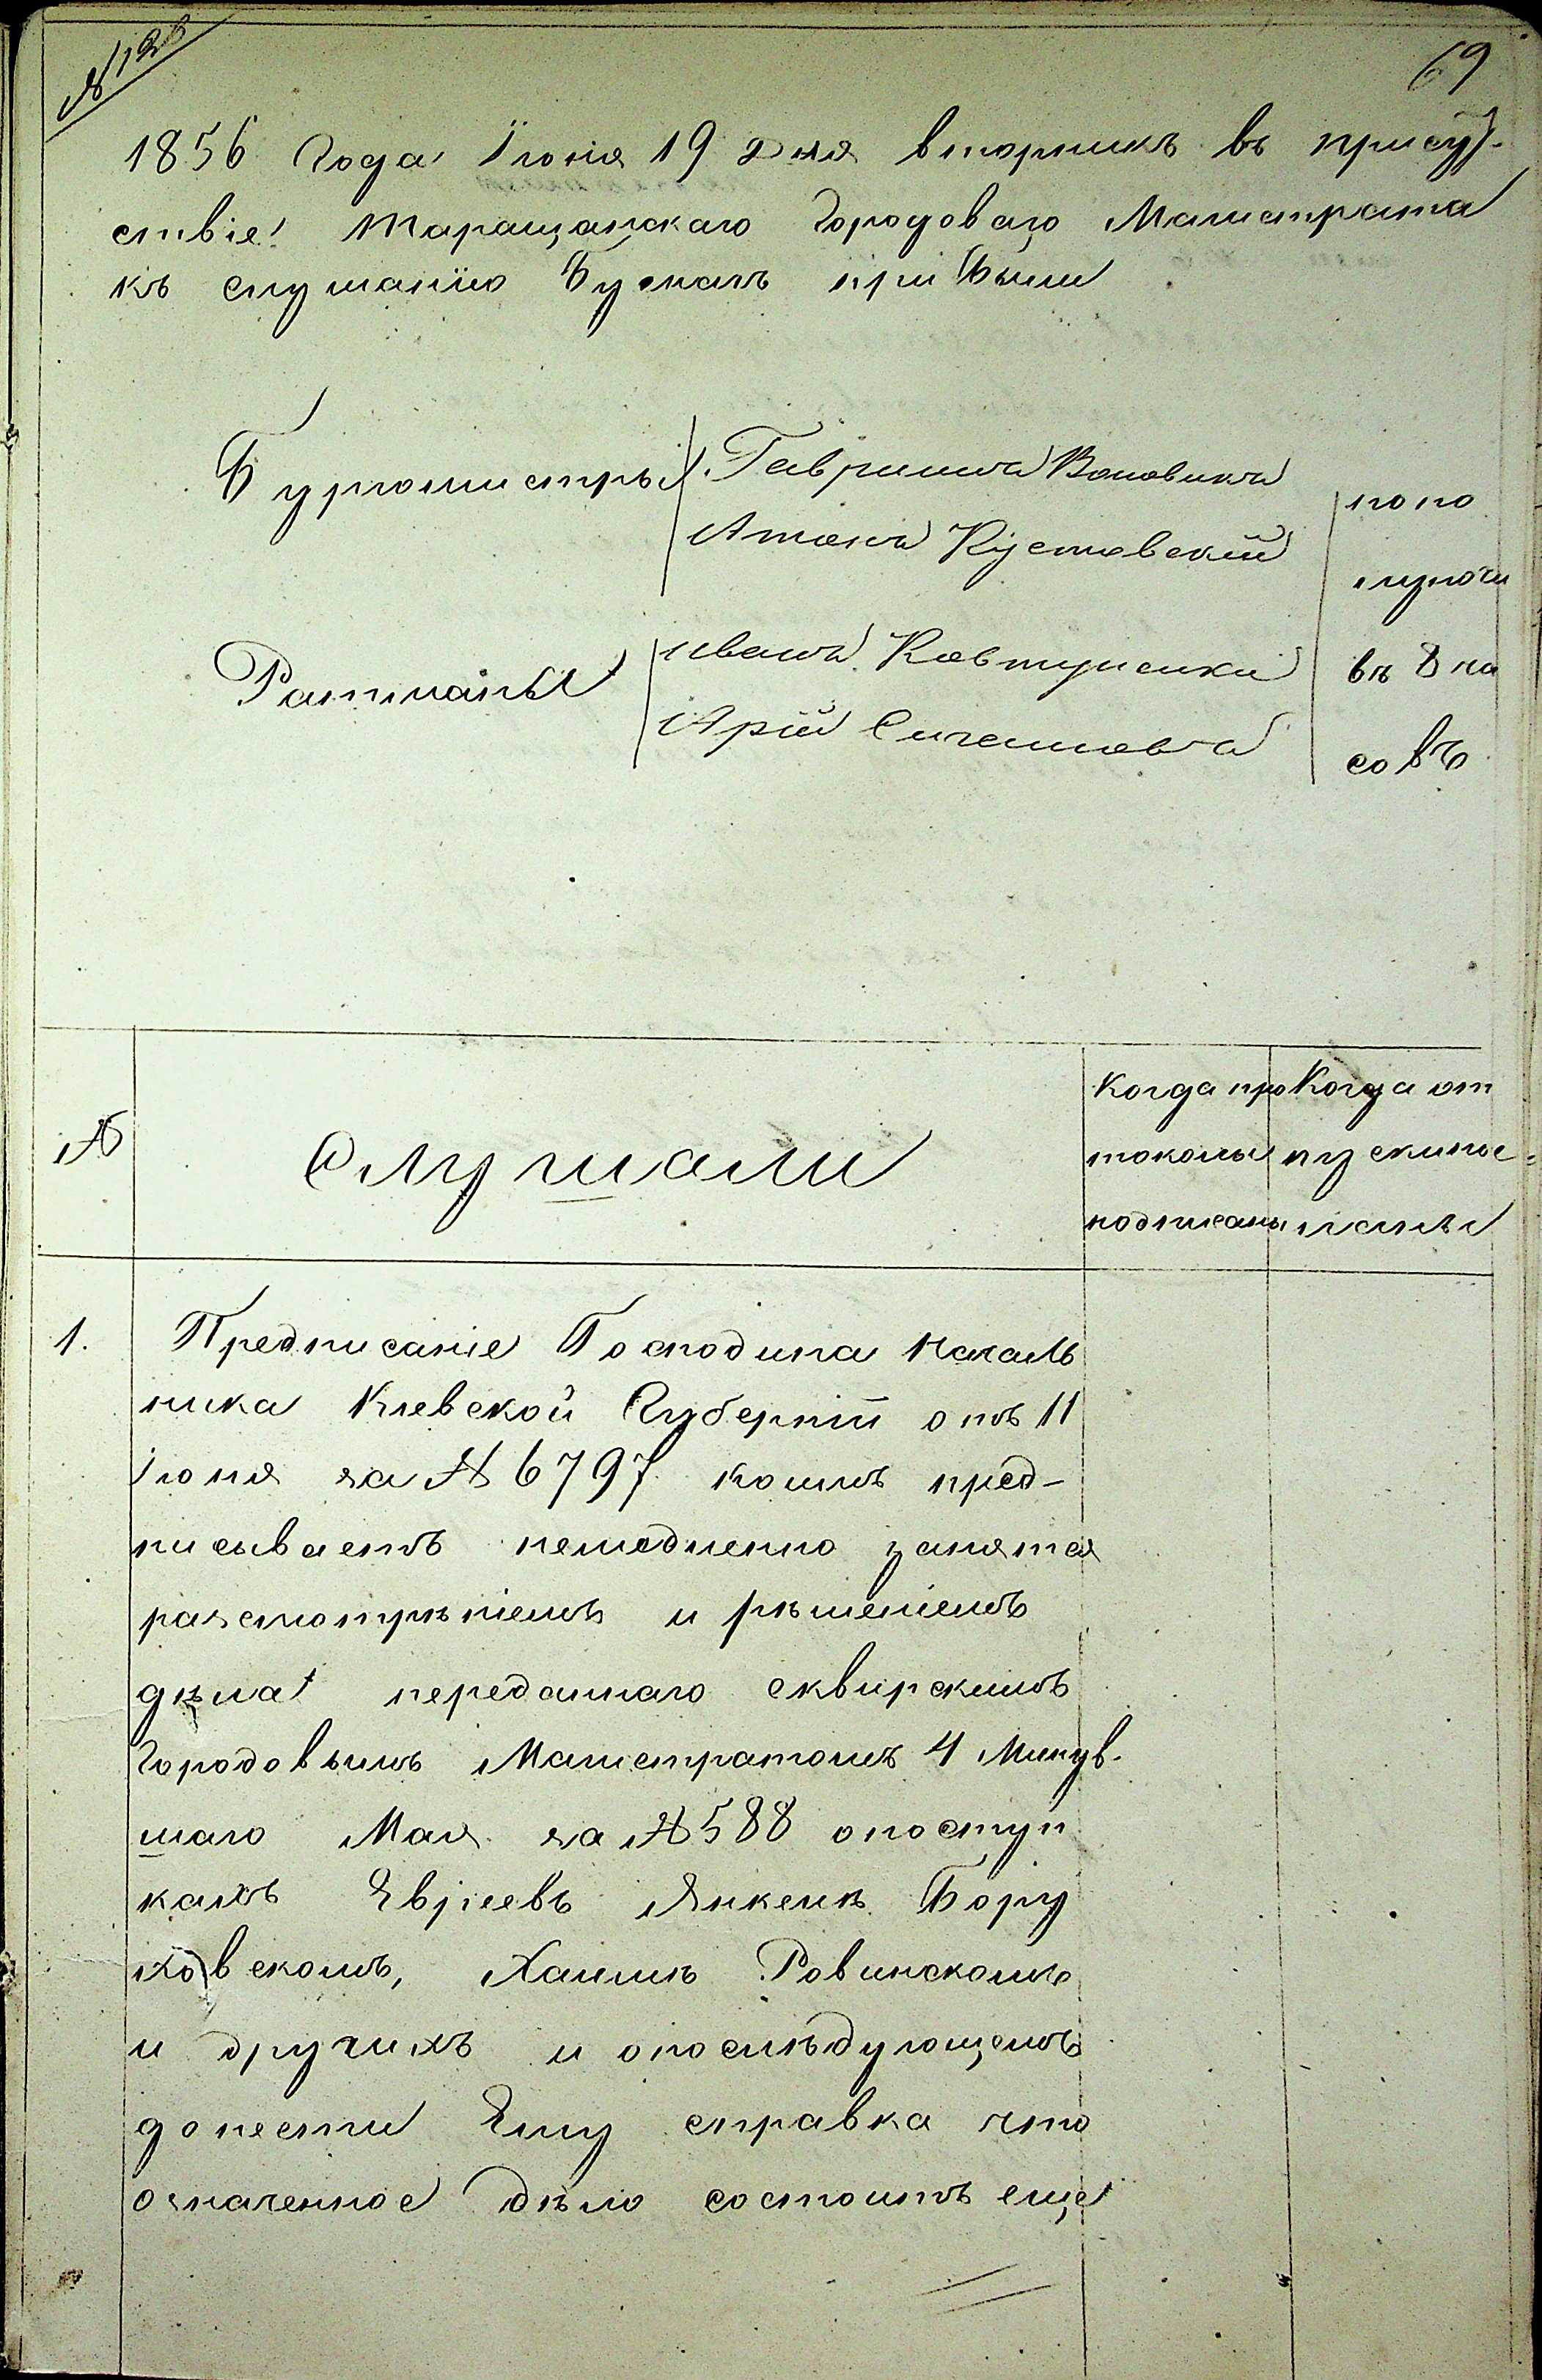 № 126
69
1856 Года Іюня 19 дня вторникъ въ присут-
ствіе Таращанскаго Городоваго Магистрата
къ слушанію Бумагъ прибыли
Бургомистры
Гавриилъ Воловикъ
Антонъ Кустовскій
Ратманы
Иванъ Ковтуненко
Арій
по по
лудни
въ 8 ча
совъ
№
Слушали
Когда про
токолы
подписаны
Когда от
пуски пос=
ланы
1.
Предписаніе Господина Началь
ника Кіевской Губерніи отъ 11
Іюня за № 6797 коимъ пред-
писываетъ немедленно занятся
разсмотрѣніемъ и рѣшеніемъ
дѣла переданнаго сквирскимъ
Городовымъ Магистратомъ 4 Минув-
шаго Мая за № 588 опоступ
кахъ Евреевъ Янкелѣ Бору
ховскомъ, Хаимѣ Ровинскомъ
и другихъ и опослѣдующемъ
донести Ему справка что
означенное дѣло состоитъ еще